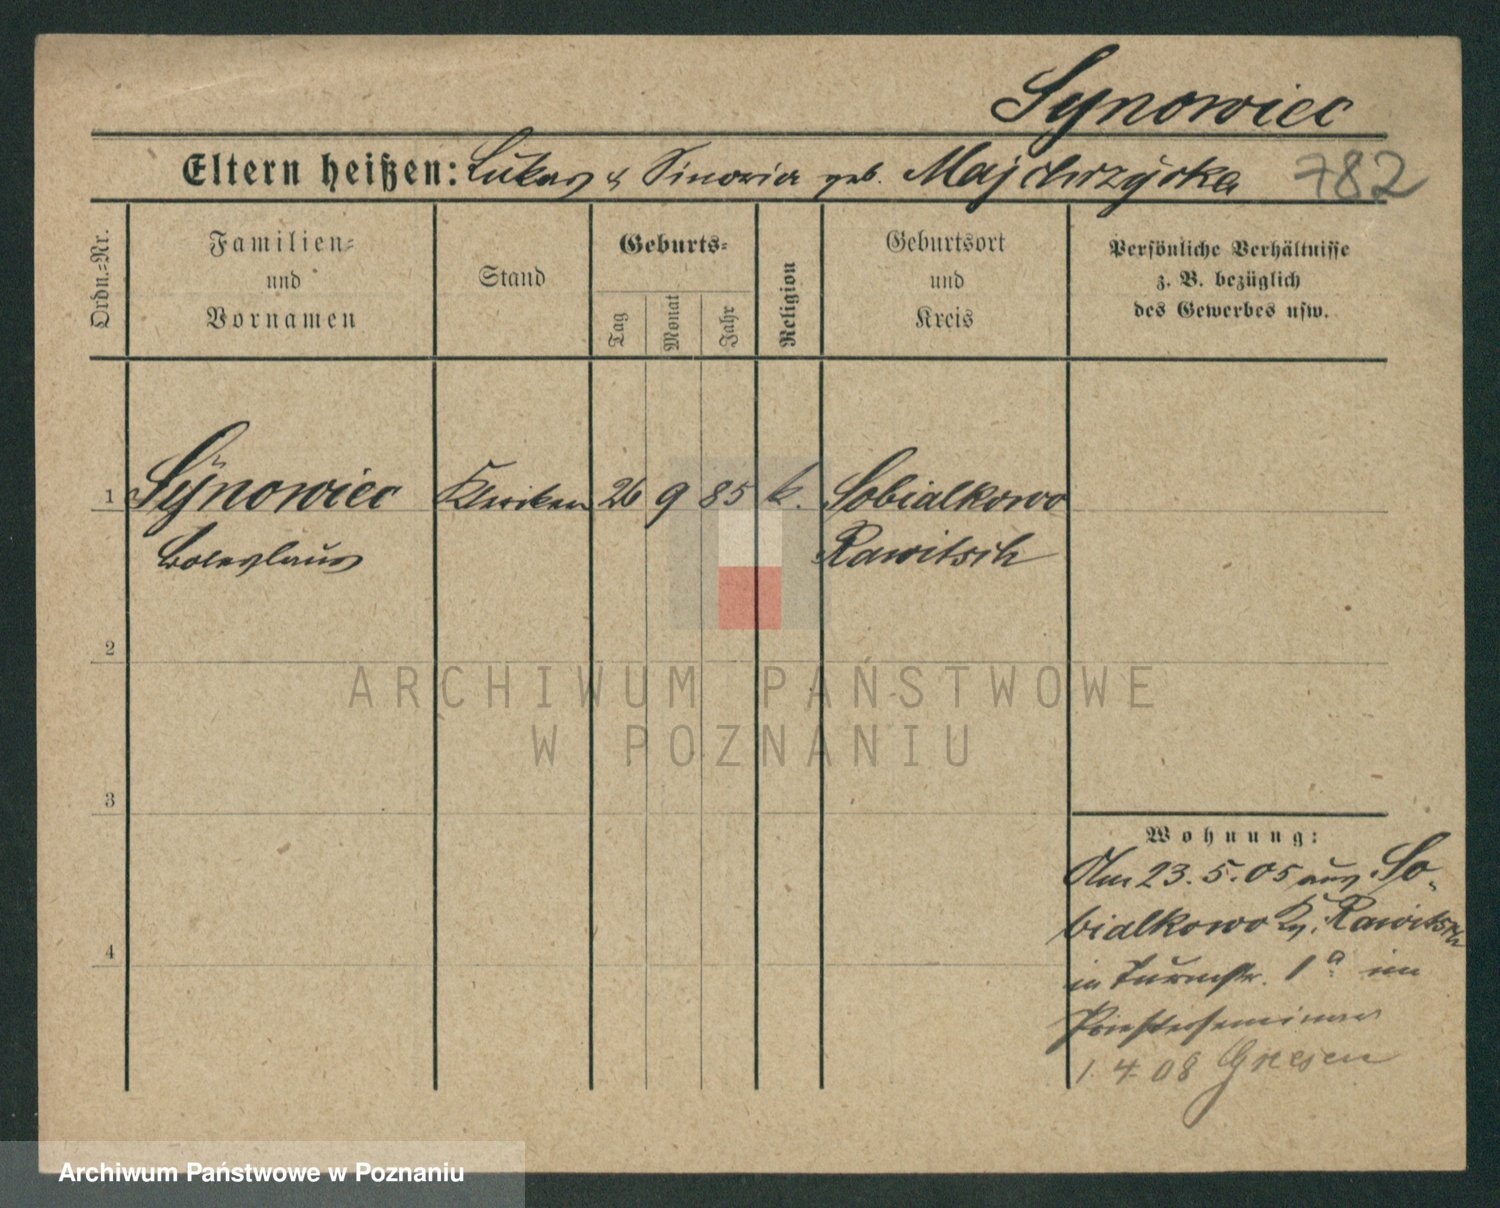 Synowiec
Eltern heißen: Lukas & Sinoria geb. Majchrzycka 782
Ordn.=Nr.
Familien=
und
Vornamen
Stand
Geburts=
Tag
Monat
Jahr
Religion
Geburtsort
und
Kreis
Persönliche Verhältnisse
z. B. bezüglich
des Gewerbes usw.
1 Synowiec Kleriker 26 9 85 k. Sobialkowo
Boleslaus Rawitsch
2
3
4
Wohnung:
Am 23.5.05 aus So-
bialkowo Kr. Rawitsch
in Turmstr. 1a im
Priesterseminar
1.4.08 Gnesen
ARCHIWUM PAŃSTWOWE
W POZNANIU
Archiwum Państwowe w Poznaniu